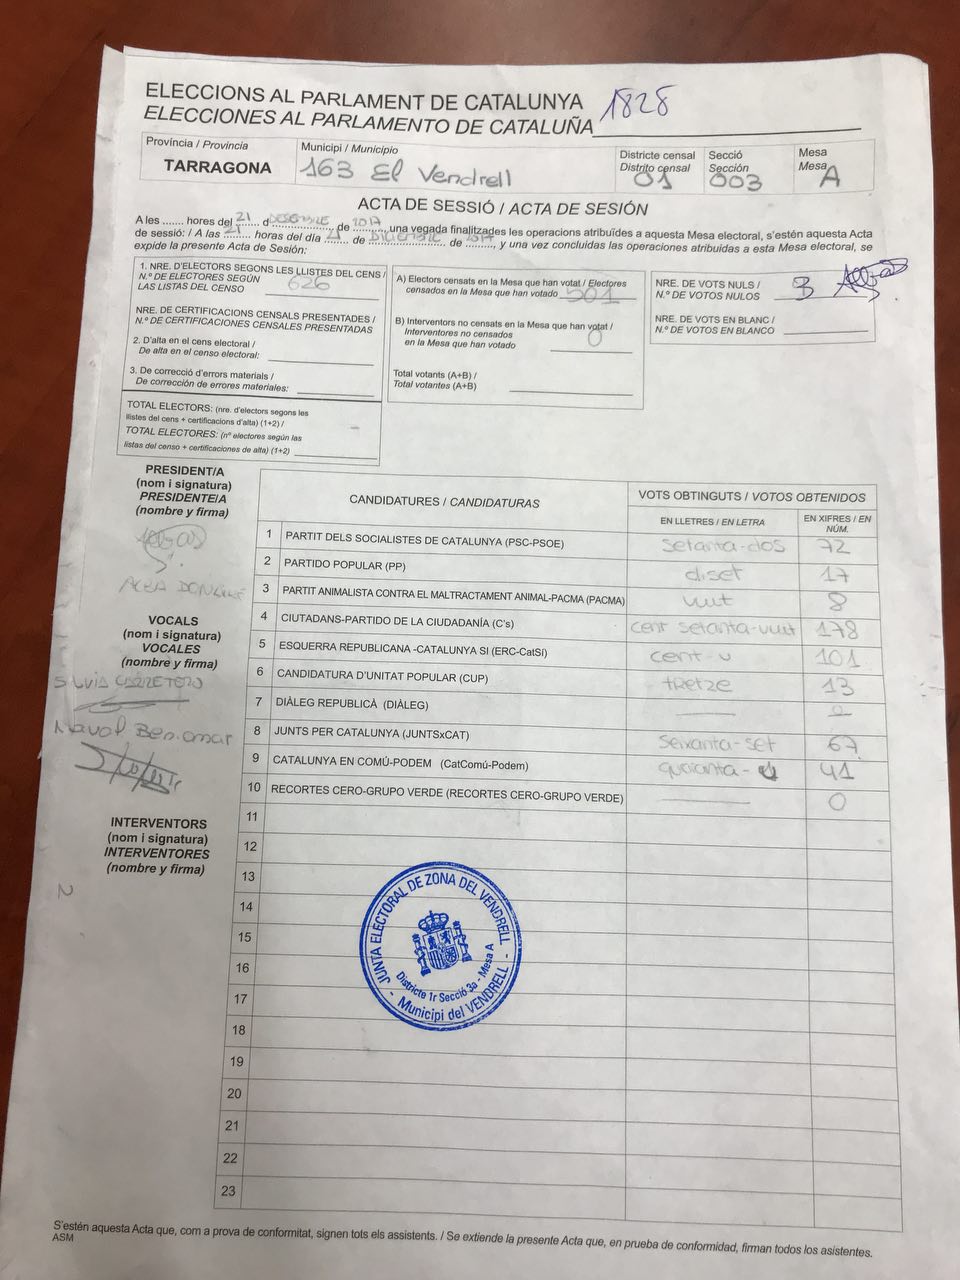 ELECCIONS AL PARLAMENT DE CATALUNYA 1828
ELECCIONES AL PARLAMENTO DE CATALUÑA
Província / Provincia
TARRAGONA
Municipi / Municipio
163 El Vendrell
Districte censal
Distrito censal
01
Secció
Sección
003
Mesa
Mesa
A
ACTA DE SESSIÓ / ACTA DE SESIÓN
A les ....... hores del 21 d DESEMBRE de 2017, una vegada finalitzades les operacions atribuïdes a aquesta Mesa electoral, s'estén aquesta Acta
de sessió: / A las 21 horas del día 21 de DICIEMBRE de 2017, y una vez concluidas las operaciones atribuidas a esta Mesa electoral, se
expide la presente Acta de Sesión:
1. NRE. D'ELECTORS SEGONS LES LLISTES DEL CENS /
N.º DE ELECTORES SEGÚN
LAS LISTAS DEL CENSO 626
NRE. DE CERTIFICACIONS CENSALS PRESENTADES /
N.º DE CERTIFICACIONES CENSALES PRESENTADAS
2. D'alta en el cens electoral /
De alta en el censo electoral:
3. De correcció d'errors materials /
De corrección de errores materiales:
TOTAL ELECTORS: (nre. d'electors segons les
llistes del cens + certificacions d'alta) (1+2) /
TOTAL ELECTORES: (nº electores según las
listas del censo + certificaciones de alta) (1+2)
A) Electors censats en la Mesa que han votat / Electores
censados en la Mesa que han votado 501
B) Interventors no censats en la Mesa que han votat /
Interventores no censados
en la Mesa que han votado 0
Total votants (A+B) /
Total votantes (A+B)
NRE. DE VOTS NULS /
N.º DE VOTOS NULOS 3
NRE. DE VOTS EN BLANC /
N.º DE VOTOS EN BLANCO
PRESIDENT/A
(nom i signatura)
PRESIDENTE/A
(nombre y firma)
VOCALS
(nom i signatura)
VOCALES
(nombre y firma)
SILVIA CARRETERO
INTERVENTORS
(nom i signatura)
INTERVENTORES
(nombre y firma)
N
CANDIDATURES / CANDIDATURAS
VOTS OBTINGUTS / VOTOS OBTENIDOS
EN LLETRES / EN LETRA
EN XIFRES / EN NÚM.
1 PARTIT DELS SOCIALISTES DE CATALUNYA (PSC-PSOE) setanta-dos 72
2 PARTIDO POPULAR (PP) diset 17
3 PARTIT ANIMALISTA CONTRA EL MALTRACTAMENT ANIMAL-PACMA (PACMA) vuit 8
4 CIUTADANS-PARTIDO DE LA CIUDADANÍA (C's) cent setanta-vuit 178
5 ESQUERRA REPUBLICANA -CATALUNYA SI (ERC-CatSí) cent-u 101
6 CANDIDATURA D'UNITAT POPULAR (CUP) tretze 13
7 DIÀLEG REPUBLICÀ (DIÀLEG)
8 JUNTS PER CATALUNYA (JUNTSxCAT) seixanta-set 67
9 CATALUNYA EN COMÚ-PODEM (CatComú-Podem) quaranta-u 41
10 RECORTES CERO-GRUPO VERDE (RECORTES CERO-GRUPO VERDE) 0
11
12
13
14
15
16
17
18
19
20
21
22
23
JUNTA ELECTORAL DE ZONA DEL VENDRELL
Districte 1r Secció 3a - Mesa A
- Municipi del VENDRELL -
S'estén aquesta Acta que, com a prova de conformitat, signen tots els assistents. / Se extiende la presente Acta que, en prueba de conformidad, firman todos los asistentes.
ASM